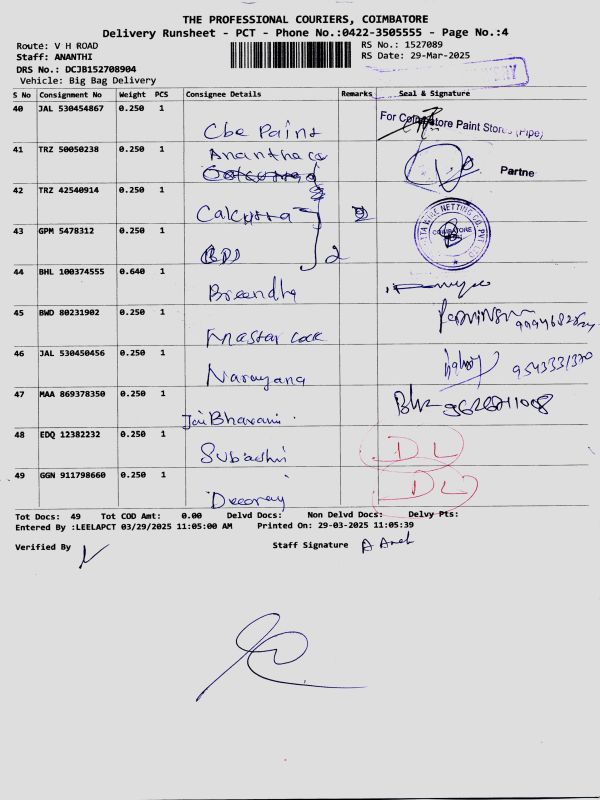 THE PROFESSIONAL COURIERS, COIMBATORE
Delivery Runsheet - PCT - Phone No.:0422-3505555 - Page No.:4
Route: V H ROAD
RS No.: 1527089
Staff: ANANTHI
RS Date: 29-Mar-2025
DRS No.: DCJB152708904
Vehicle: Big Bag Delivery
S No Consignment No Weight PCS Consignee Details Remarks Seal & Signature
40 JAL 530454867 0.250 1
Cbe Paint
For Coimbatore Paint Stores (Pipe)
41 TRZ 50050238 0.250 1
Partne
42 TRZ 42540914 0.250 1
Calcutta
43 GPM 5478312 0.250 1
2
NETTING CO. PVT
COIMBATORE
44 BHL 100374555 0.640 1
Breendha
45 BWD 80231902 0.250 1
Mastar Lock
46 JAL 530450456 0.250 1
Narayana
47 MAA 869378350 0.250 1
Jai Bhavani
48 EDQ 12382232 0.250 1
DL
49 GGN 911798660 0.250 1
DL
Tot Docs: 49 Tot COD Amt: 0.00 Delvd Docs: Non Delvd Docs: Delvy Pts:
Entered By :LEELAPCT 03/29/2025 11:05:00 AM Printed On: 29-03-2025 11:05:39
Verified By
Staff Signature